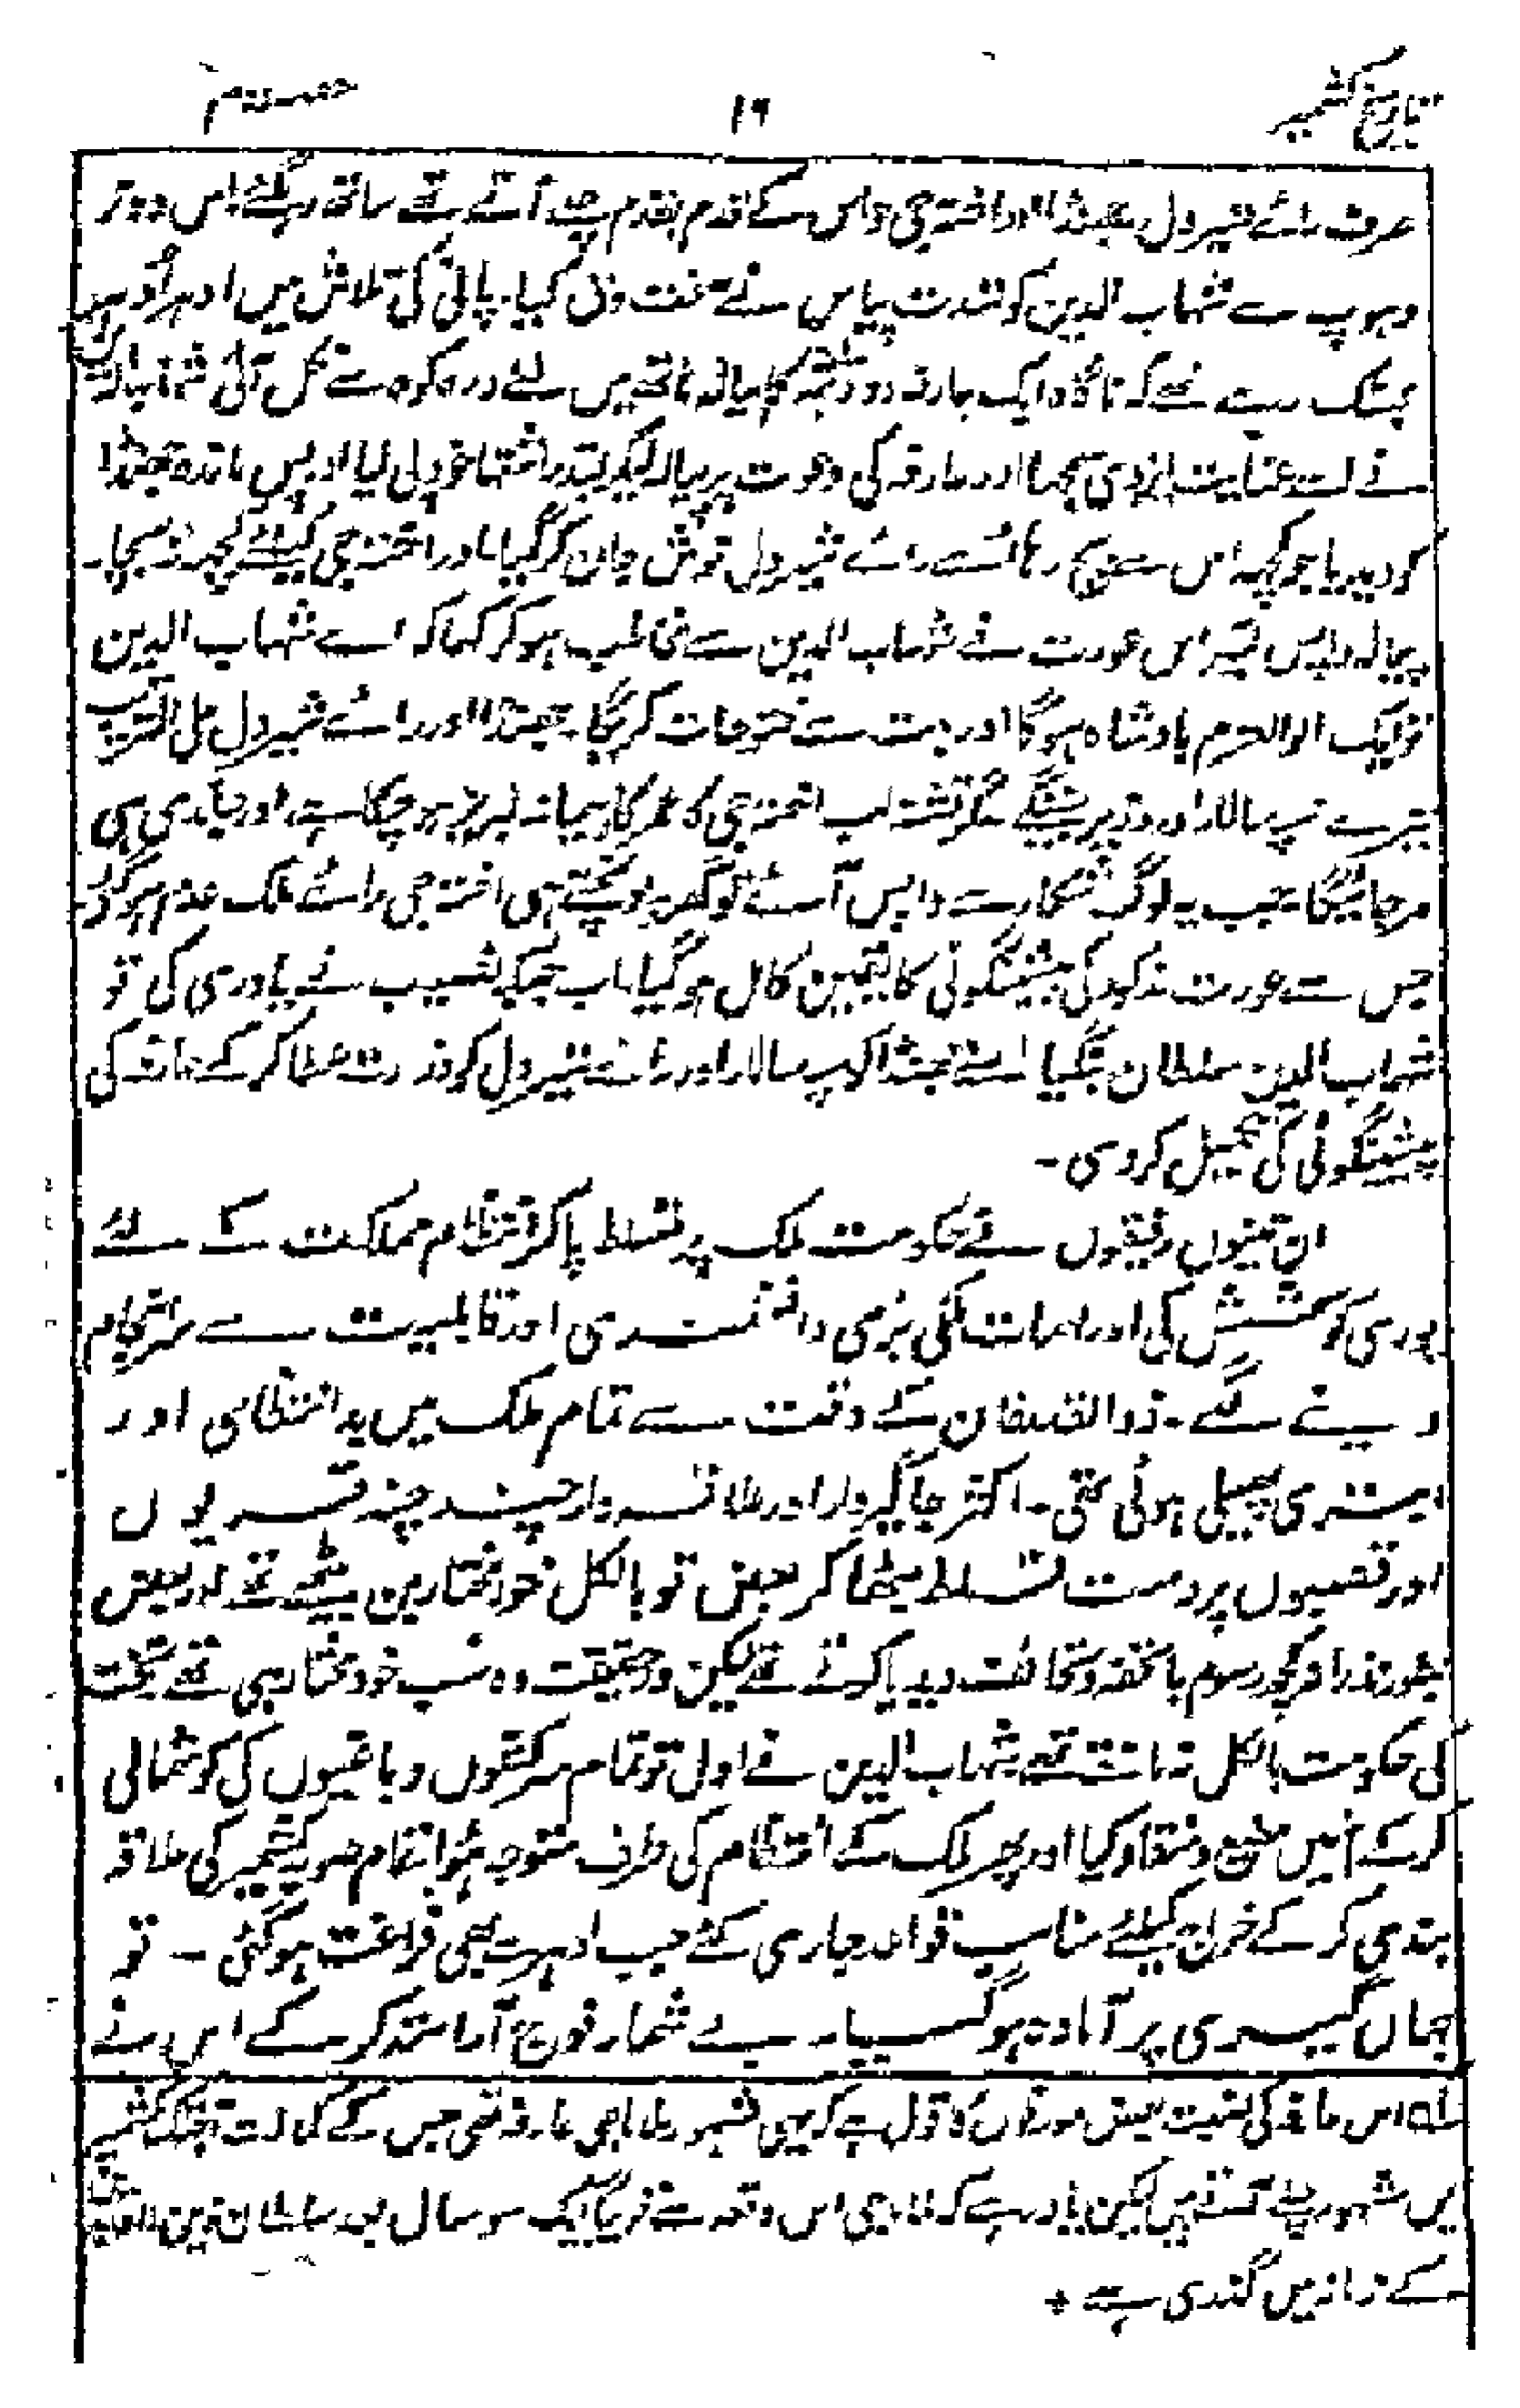 تاریخ کشمیر
۱۶
حصہ دوم
صرف رائے شیردل، جنڈا اور اختہ جی جو اس کے قدم بقدم چلے آتے تھے ساتھ رہ گئے اس دوڑ
دہوپ سے شہاب الدین کو شدت پیاس نے سخت دق کیا۔ پانی کی تلاش میں ادہر اُدہر
بھٹک رہے تھے کہ ناگاہ ایک عارفہ دودھ کا پیالہ ہاتھ میں لئے درہ کوہ سے نکل آئی شہاب الدین
نے اسے عنایت ایزدی سمجھا اور عارفہ کی دعوت پر پیالہ لیکر بقدر اشتہا خود پی لیا اور پس ماندہ جنڈا
کو دیدیا جو کچھ اس سے بچ رہا اُسے رائے شیردل نوش جان کر گیا اور اختہ جی کیلئے کچھ نہ بچا۔
پیالہ واپس لیتے اس عورت نے شہاب الدین سے مخاطب ہو کر کہا کہ اے شہاب الدین
تو ایک اولوالعزم بادشاہ ہوگا اور بہت سے فتوحات کریگا۔ جنڈا اور رائے شیردل علی الترتیب
تیرے سپہ سالار اور وزیر بنینگے مگر تشنہ لب اختہ جی کا عمر کا پیمانہ لبریز ہو چکا ہے اور جلدی ہی
مرجائیگا۔ جب یہ لوگ شکار سے واپس آئے تو گھر پہونچتے ہی اختہ جی رائے ملک عدم ہو گیا
جس سے عورت مذکور کی پیشگوئی کا یقین کامل ہو گیا۔ اب جبکہ نصیب نے یاوری کی تو
شہاب الدین سلطان بنگیا اسنے جنڈا کو سپہ سالار اور رائے شیردل کو وزارت عطا کر کے عارفہ کی
پیشنگوئی کی تکمیل کر دی۔
ان تینوں رفیقوں نے حکومت ملک پر تسلط پا کر انتظام مملکت کے لئے
پوری کوشش کی اور مہمات ملکی بڑی دانشمندی اور قابلیت سے سرانجام
دینے لگے۔ ذوالقدرخان کے وقت سے تمام ملک میں بد انتظامی اور
ابتری پھیلی ہوئی تھی۔ اکثر جاگیردار اور علاقہ دار چند چند قریوں
اور قصبوں پر دست تسلط بیٹھا کر بعض تو بالکل خود مختار بن بیٹھے تھے اور بعض
بطور نذرانہ کچھ رسوم یا تحفہ و تحائف دیدیا کرتے تھے لیکن درحقیقت وہ سب خود مختار ہی تھے تخت
کی حکومت بالکل نہ مانتے تھے شہاب الدین نے اول تو تمام سرکشوں و باغیوں کی گوشمالی
کر کے اُنہیں مطیع و منقاد کیا اور پھر ملک کے انتظام کی طرف متوجہ ہوا تمام صوبہ کشمیر کی علاقہ
بندی کر کے خراج کیلئے مناسب قواعد جاری کئے جب ادہر سے بھی فراغت ہو گئی ۔ تو
جہاں گیری پر آمادہ ہو گیا۔ بے شمار فوج آراستہ کر کے اس نے
لہ اس عارفہ کی نسبت بعض مورخوں کا قول ہے کہ یہی مشہور للہ ماجی عارفہ تھی جس کے کمالات آجتک کشمیر
میں مشہور چلے آتے ہیں لیکن یاد رہے کہ للہ ماجی اس واقعہ سے قریباً ایک سو سال بعد سلطان زین العابدین
کے زمانہ میں گذری ہے +